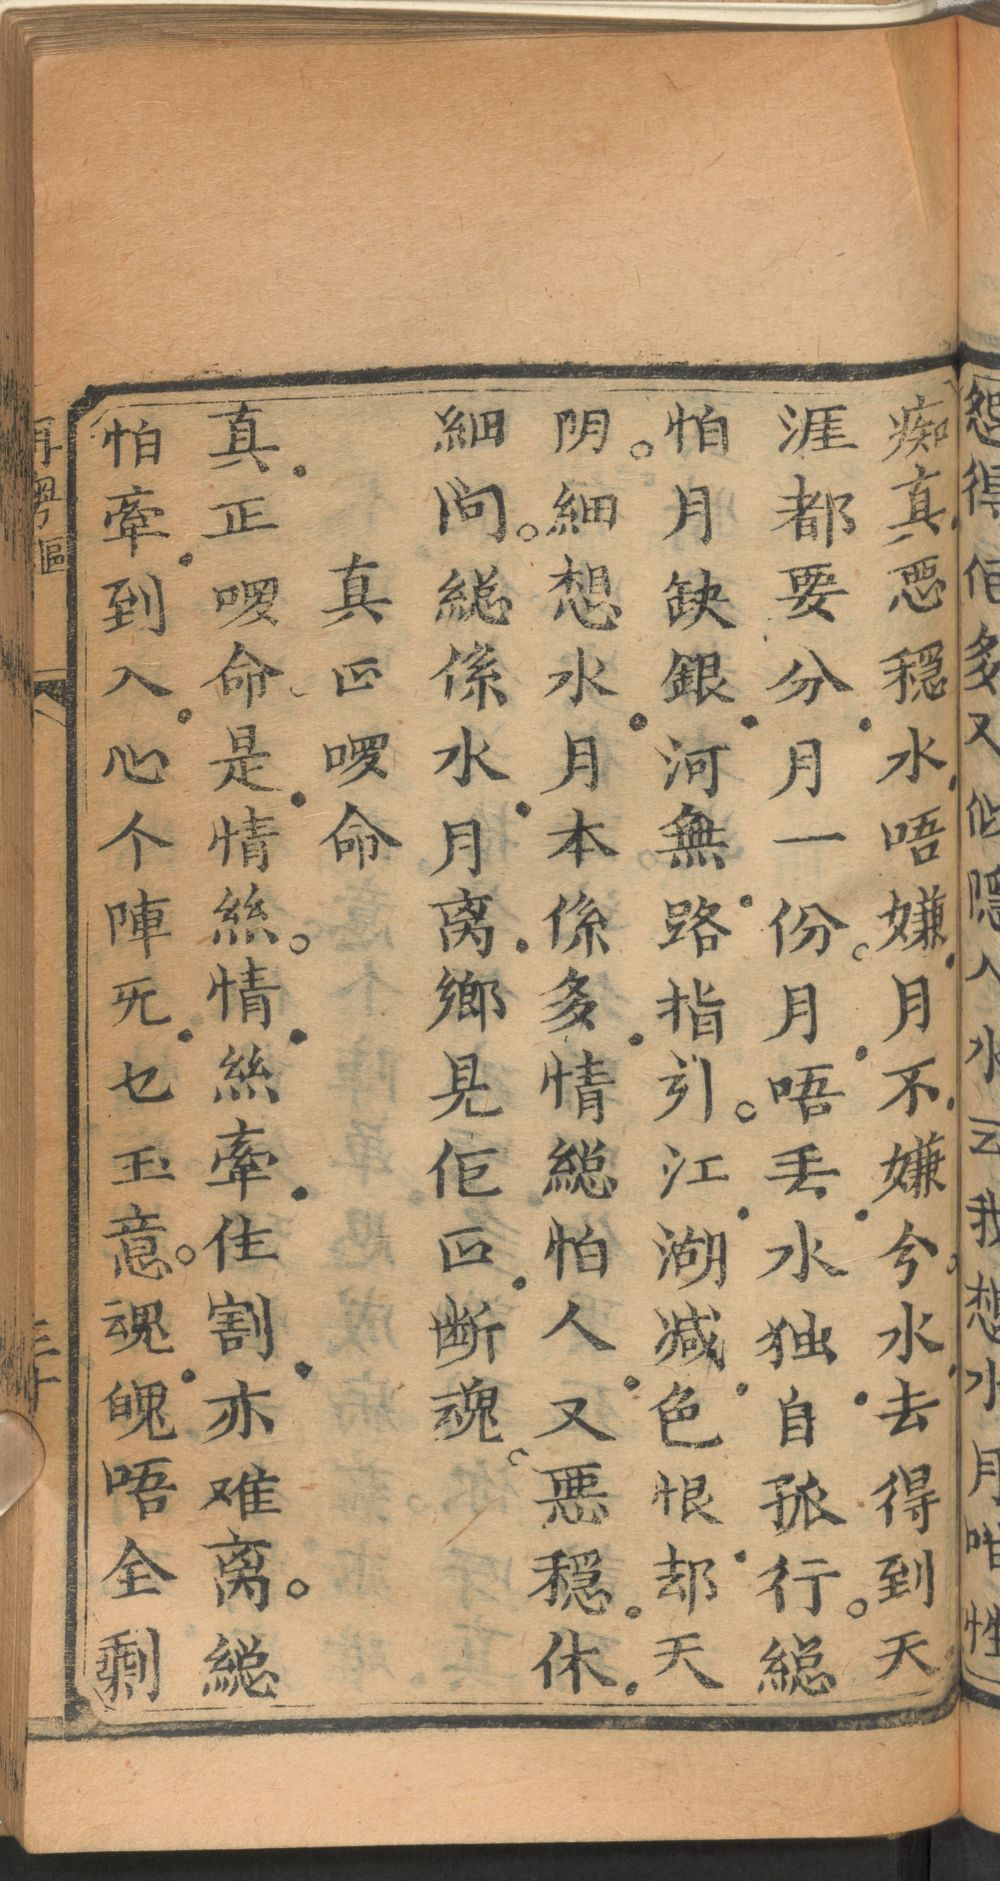 怨得佢多又似隱人水云我想水月咁性
痴真惡穩水唔嫌月不嫌兮水去得到天
涯都要分月一份月唔丢水独自孤行緫
怕月缺銀河無路指引江湖减色恨却天
阴細想水月本係多情緫怕人又惡穩休
細问緫係水月离鄉見佢叵断魂
真正啰命
真正啰命是情絲情絲牽住割亦难离緫
怕牽到入心个陣死乜主意魂魄唔全剩
再粤謳
三十